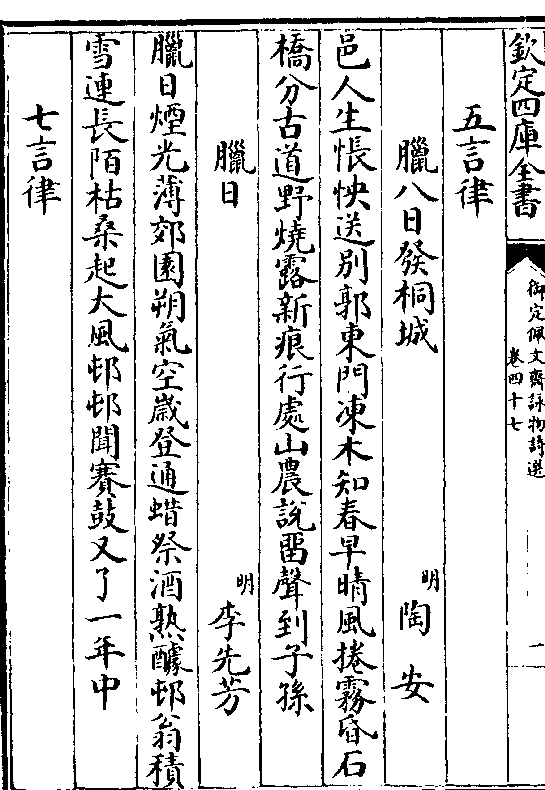 欽定四庫全書
御定佩文齋詠物詩選
卷四十七
一
五言律
臘八日發桐城
明
陶安
邑人生悵怏送別郭東門凍木知春早晴風捲霧昏石
橋分古道野燒露新痕行處山農說畱聲到子孫
臘日
明
李先芳
臘日煙光薄郊園朔氣空歲登通蜡祭酒熟醵邨翁積
雪連長陌枯桑起大風邨邨聞賽鼓又了一年中
七言律